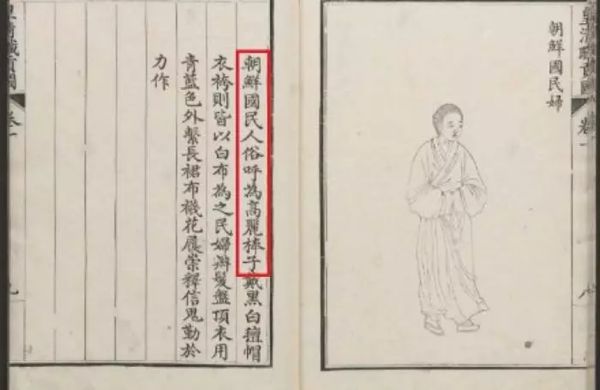 皇清職貢圖 卷一
八
朝鮮國民婦
朝鮮國民人俗呼為高麗棒子戴黑白氊帽
衣袴則皆以白布為之民婦辮髮盤頂衣用
青藍色外繫長裙布襪花履崇釋信鬼勤於
力作
皇清職貢圖 卷一
九